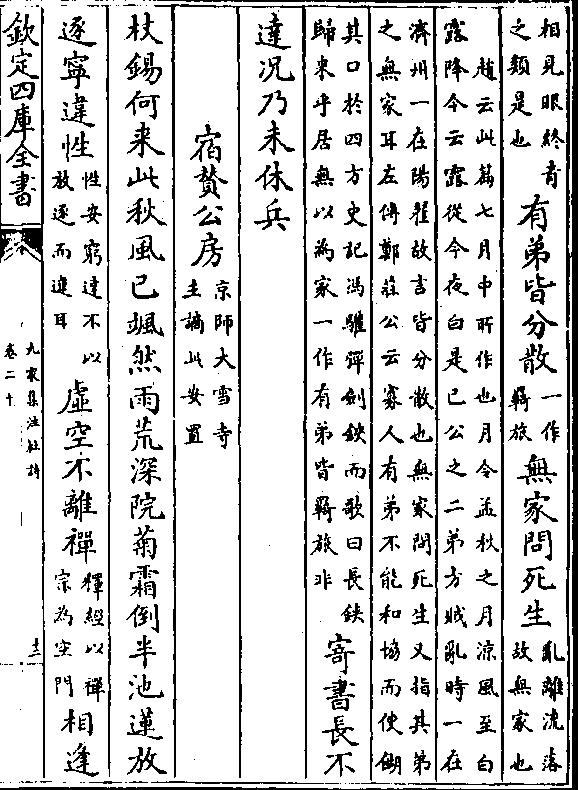 相見眼終青
之類是也
有弟皆分散
一作
羇旅
無家問死生
亂離流落
故無家也
趙云此篇七月中所作也月令孟秋之月涼風至白
露降今云露從今夜白是已公之二弟方賊亂時一在
濟州一在陽翟故言皆分散也無家問死生又指其弟
之無家耳左傳鄭莊公云寡人有弟不能和協而使餬
其口於四方史記馮驩彈劍鋏而歌曰長鋏
歸来乎居無以為家一作有弟皆羇旅非
寄書長不
達况乃未休兵
宿贊公房
京師大雪寺
主謫此安置
杖錫何来此秋風已颯然雨荒深院菊霜倒半池蓮放
逐寧違性
性安窮達不以
放逐而違耳
虛空不離禪
釋經以禪
宗為空門
相逢
欽定四庫全書
九家集注杜詩
卷二十